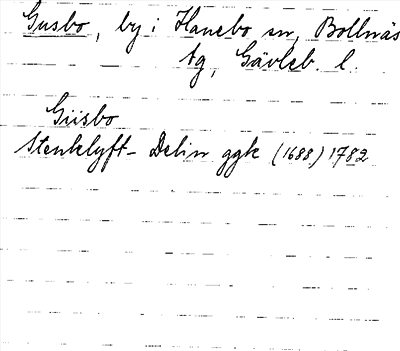 Gusbo, by i Hanebo sn, Bollnäs
tg, Gävleb. l.
Güsbo
Stenklyft- Delin ggk (1688) 1782